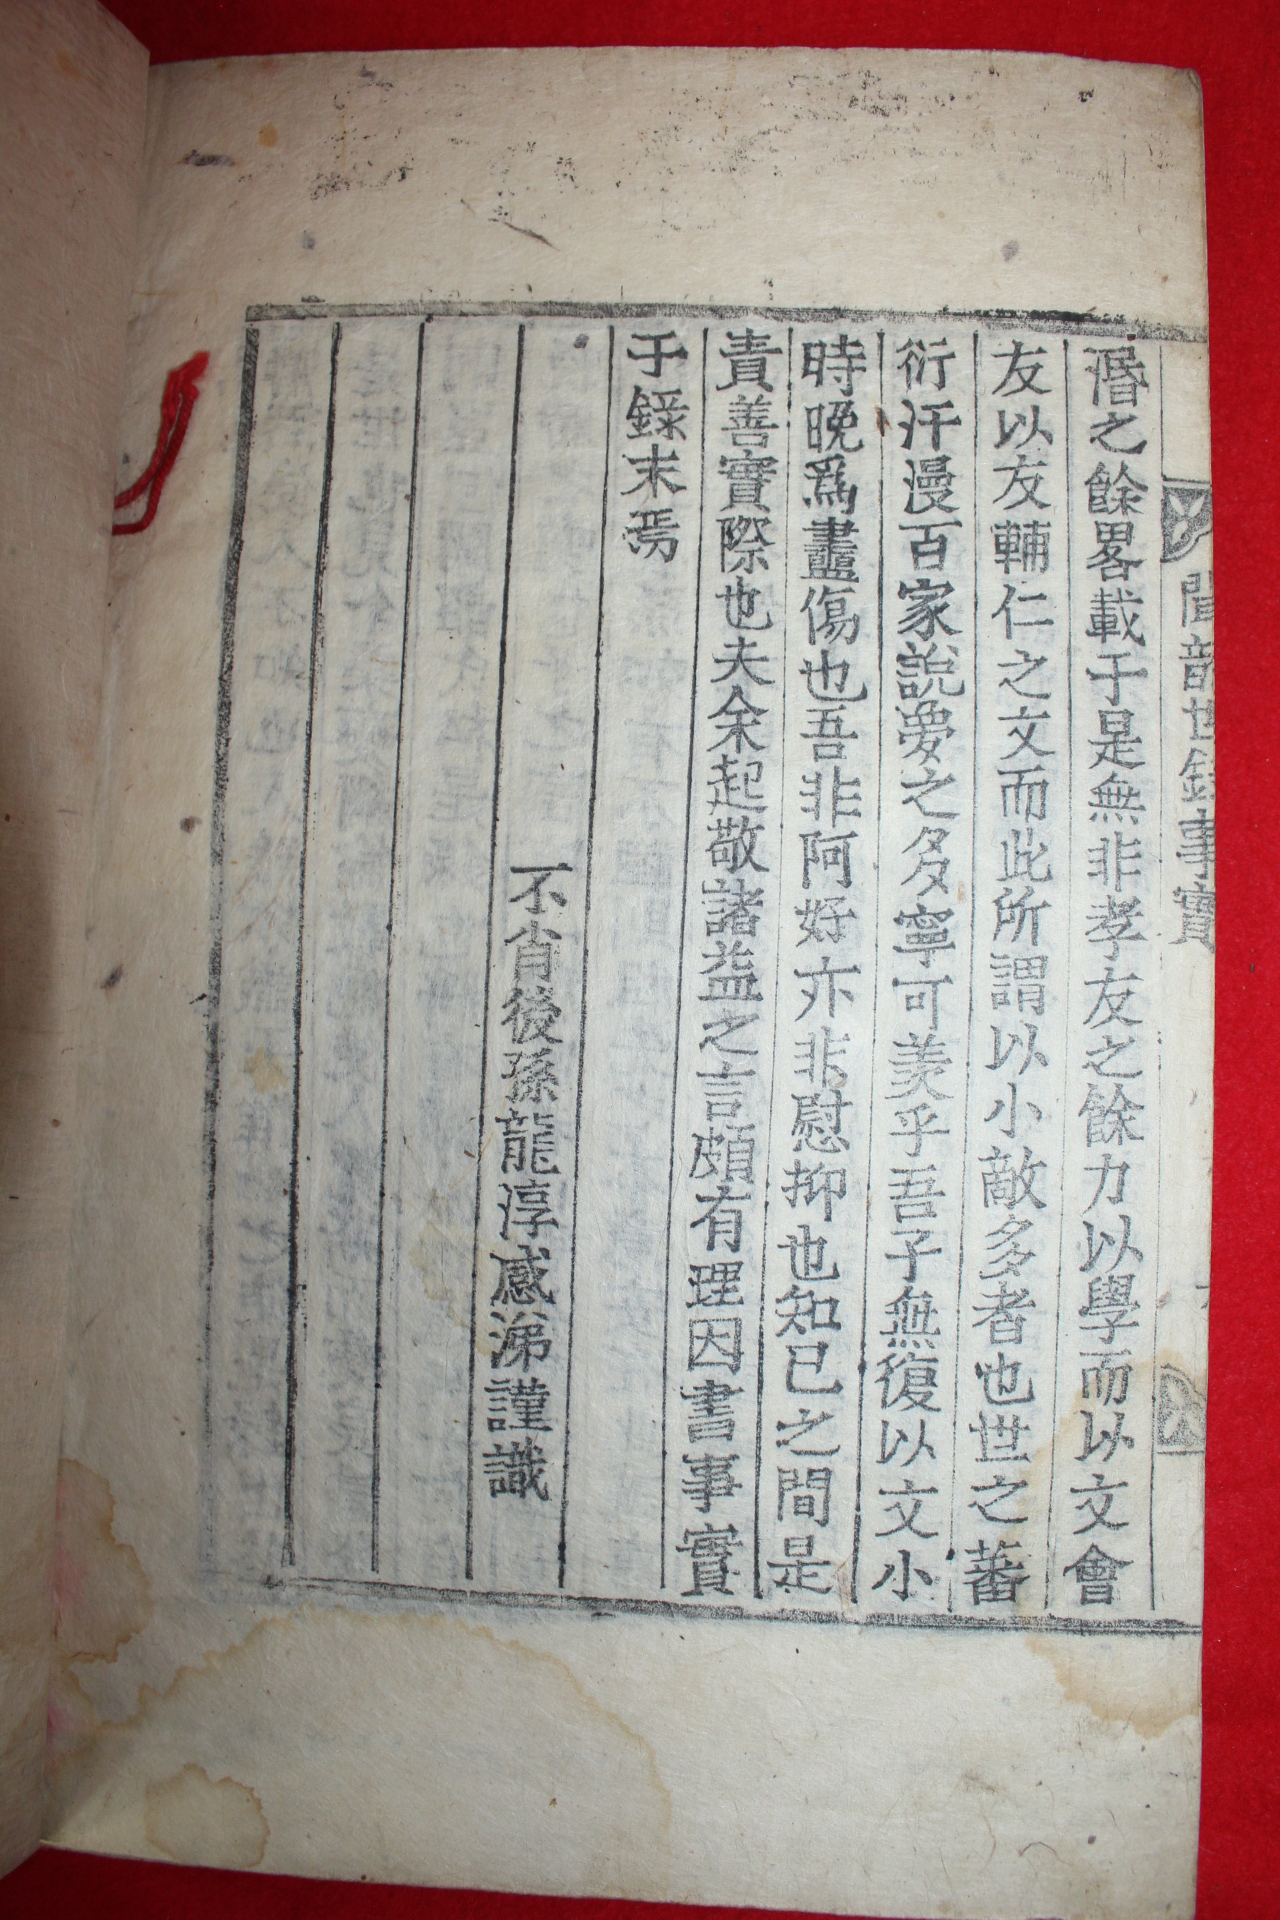 聞韶世錄事實
湣之餘畧載于是無非孝友之餘力以學而以文會
友以友輔仁之文而此所謂以小敵多者也世之蕃
衍汗漫百家說夢之多寧可羨乎吾子無復以文小
時晩爲衋傷也吾非阿好亦非慰抑也知已之間是
責善實際也夫余起敬諸益之言頗有理因書事實
于錄末焉
不肖後孫龍淳感涕謹識